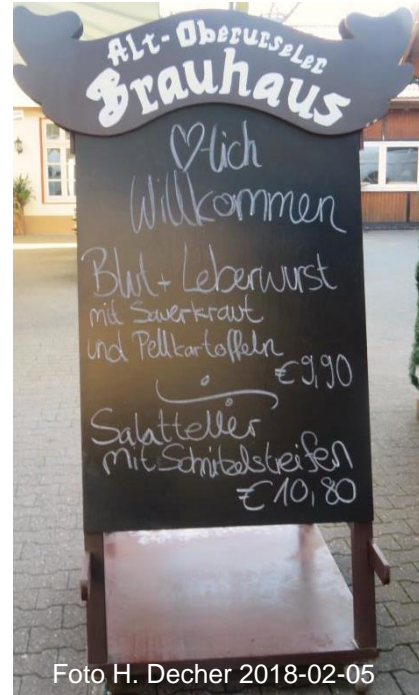 Alt-Oberurseler
Brauhaus
♡-lich
Willkommen
Blut + Leberwurst
mit Sauerkraut
und Pellkartoffeln
€9,90
Salatteller
mit Schnitbelstreifen
€10,80
Foto H. Decher 2018-02-05